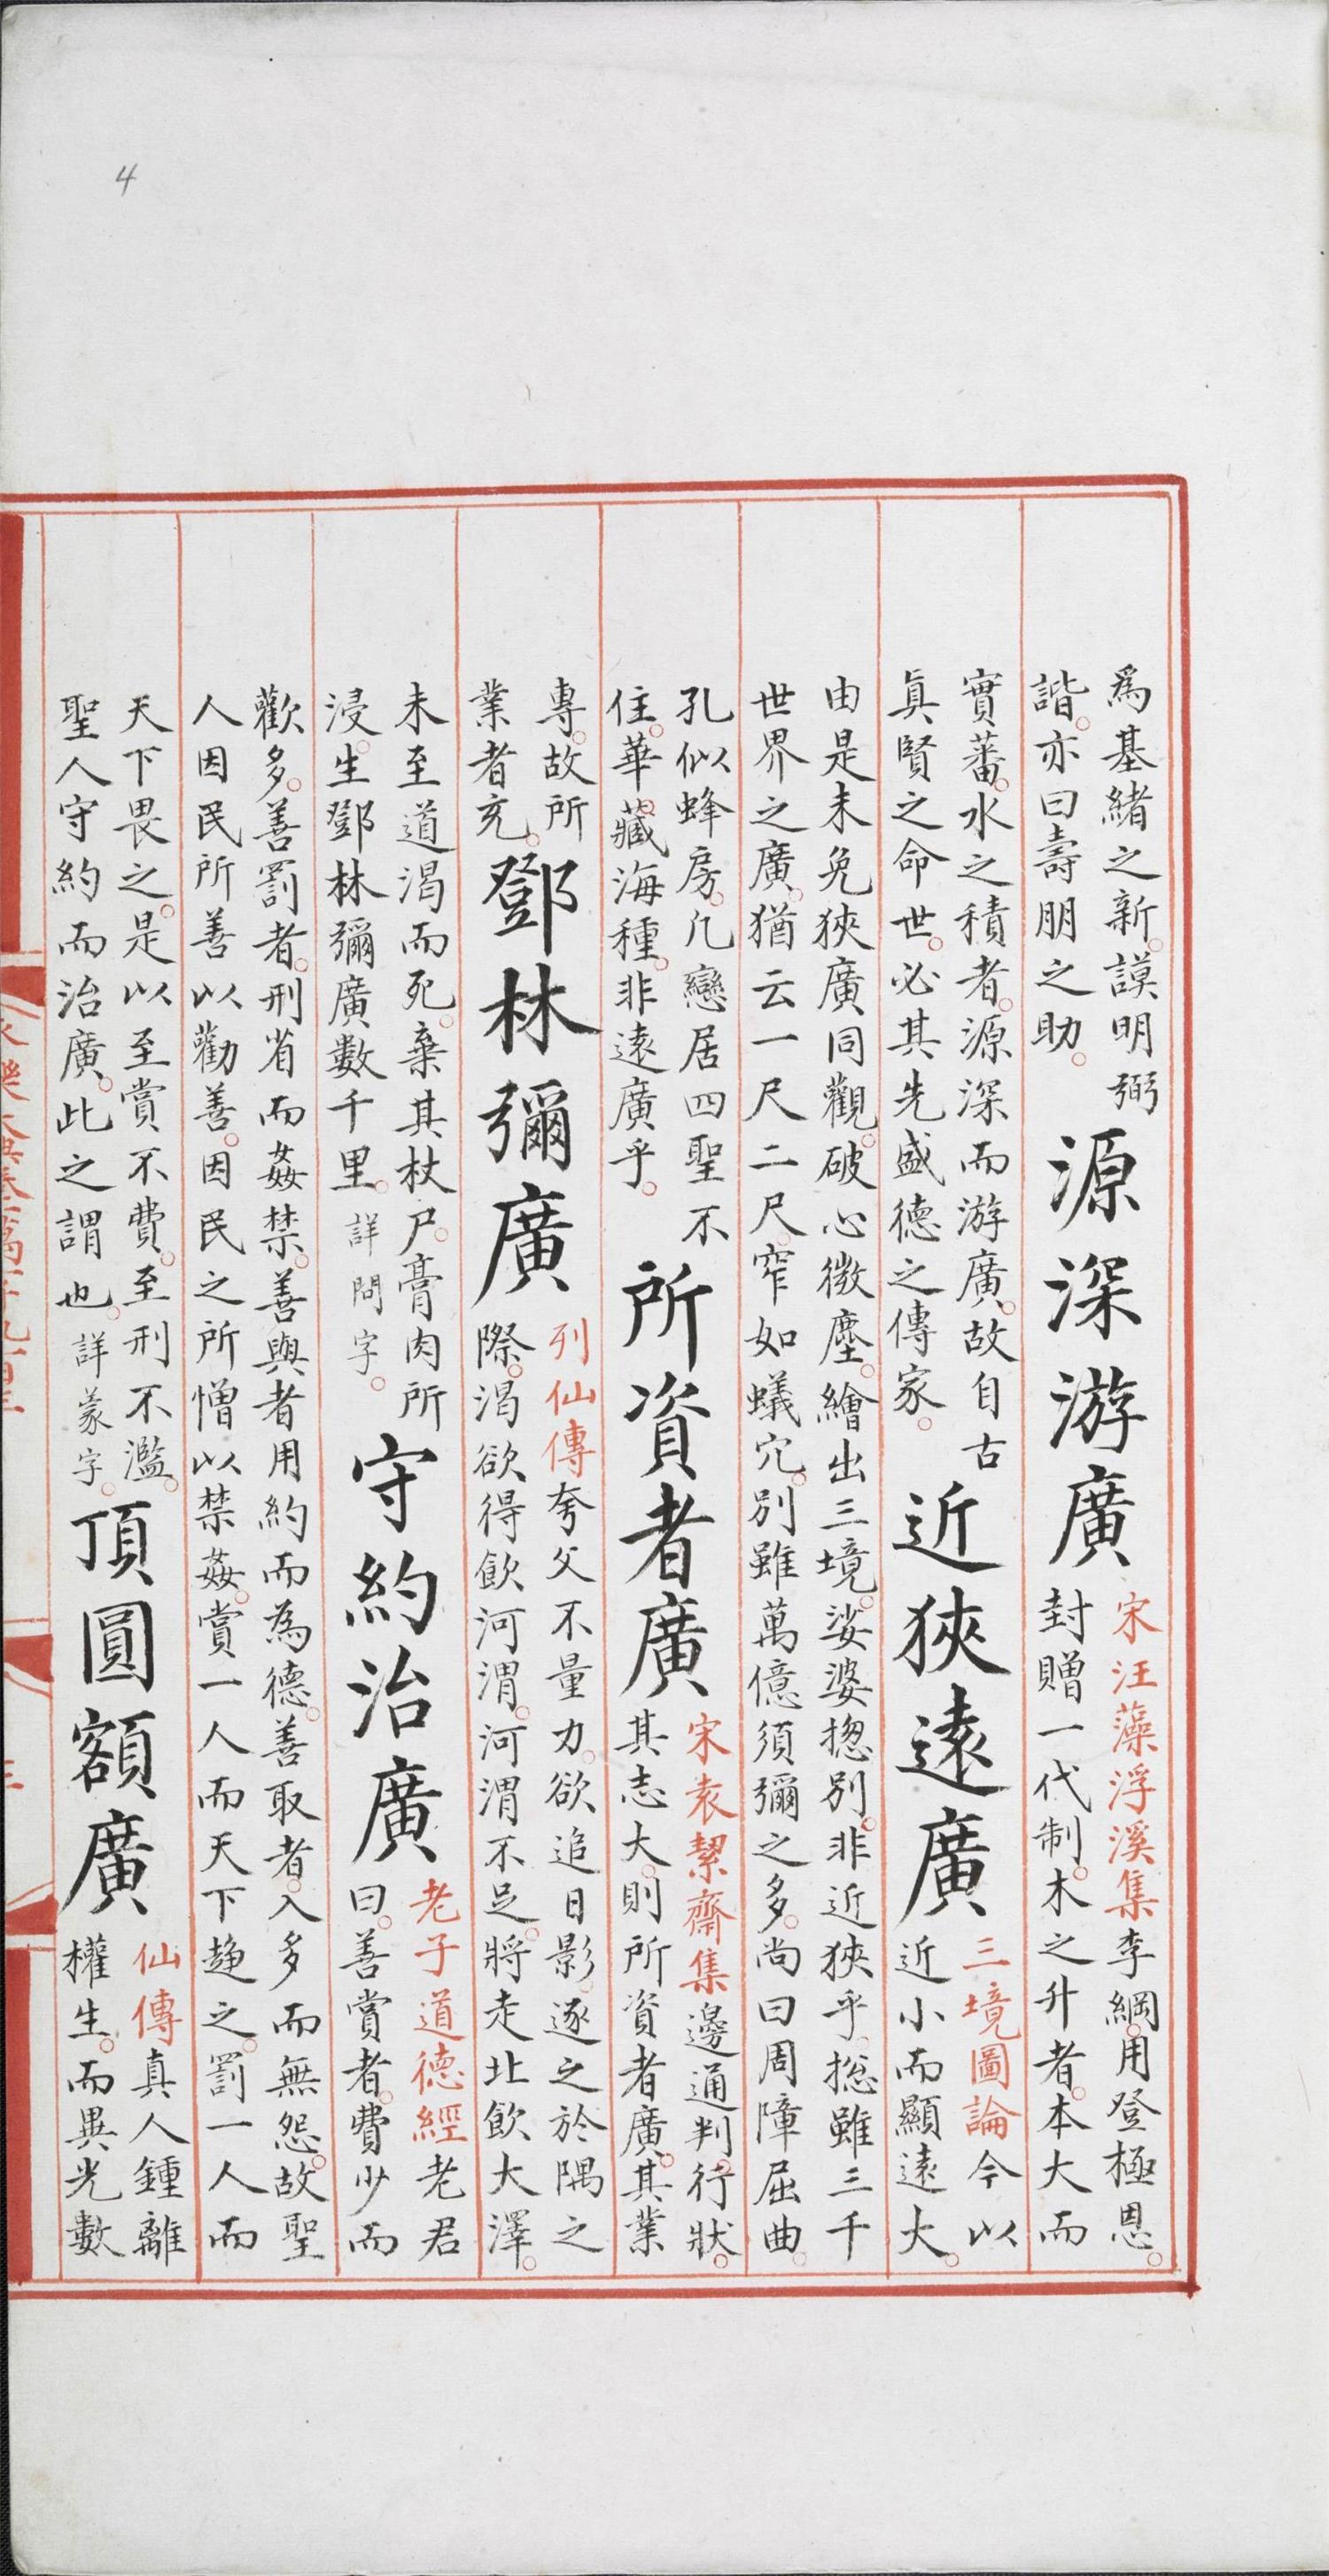 4
爲基緒之新謨明弼
諧亦曰壽朋之助
源深游廣
宋汪藻浮溪集李綱用登極恩
封贈一代制木之升者本大而
實蕃水之積者源深而游廣故自古
眞賢之命世必其先盛德之傳家
近狹遠廣
三境圖論今以
近小而顯遠大
由是未免狹廣同觀破心微塵繪出三境娑婆揔別非近狹乎揔雖三千
世界之廣猶云一尺二尺窄如蟻穴別雖萬億須彌之多尚曰周障屈曲
孔似蜂房凡戀居四聖不
住華藏海種非遠廣乎
所資者廣
宋袁絜齋集邊通判行狀
其志大則所資者廣其業
專故所
業者充
鄧林彌廣
列仙傳夸父不量力欲追日影逐之於隅之
際渴欲得飲河渭河渭不足將走北飲大澤
未至道渴而死棄其杖尸膏肉所
浸生鄧林彌廣數千里詳問字
守約治廣
老子道德經老君
曰善賞者費少而
歡多善罰者刑省而姦禁善與者用約而為德善取者入多而無怨故聖
人因民所善以勸善因民之所憎以禁姦賞一人而天下趍之罰一人而
天下畏之是以至賞不費至刑不濫
聖人守約而治廣此之謂也詳蒙字
頂圓額廣
仙傳真人鍾離
權生而異光數